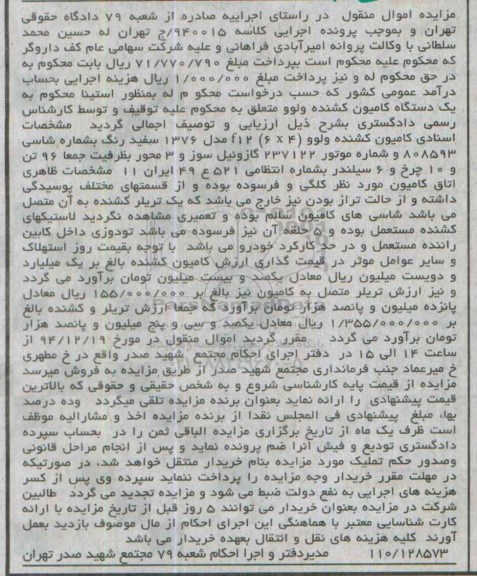 مزایده اموال منقول در راستای اجراییه صادره از شعبه ۷۹ دادگاه حقوقی
تهران و بموجب پرونده اجرایی کلاسه ۹۴۰۰۱۵/ج تهران له حسین محمد
سلطانی با وکالت پروانه امیرآبادی فراهانی و علیه شرکت سهامی عام کف داروگر
که محکوم علیه محکوم است بپرداخت مبلغ ۷۱/۷۷۰/۷۹۰ ریال بابت محکوم به
در حق محکوم له و نیز پرداخت مبلغ ۱/۰۰۰/۰۰۰ ریال هزینه اجرایی بحساب
درآمد عمومی کشور که حسب درخواست محکو م له بمنظور استیفا محکوم به
یک دستگاه کامیون کشنده ولوو متعلق به محکوم علیه توقیف و توسط کارشناس
رسمی دادگستری بشرح ذیل ارزیابی و توصیف اجمالی گردید مشخصات
اسنادی کامیون کشنده ولوو (۴ x ۶) f۱۲ مدل ۱۳۷۶ سفید رنگ بشماره شاسی
۸۰۸۵۹۳ و شماره موتور ۲۳۷۱۲۲ گازوئیل سوز و ۳ محور بظرفیت جمعا ۹۶ تن
و ۱۰ چرخ و ۶ سیلندر بشماره انتظامی ۵۲۱ ع ۴۹ ایران ۱۱ مشخصات ظاهری
اتاق کامیون مورد نظر کلگی و فرسوده بوده و از قسمتهای مختلف پوسیدگی
داشته و از حالت تراز بودن نیز خارج می باشد که یک تریلر کشنده به آن متصل
می باشد شاسی های کامیون سالم بوده و تعمیری مشاهده نگردید لاستیکهای
کشنده مستعمل بوده و ۵ حلقه آن نیز فرسوده می باشد تودوزی داخل کابین
راننده مستعمل و در حد کارکرد خودرو می باشد با توجه بقیمت روز استهلاک
و سایر عوامل موثر در قیمت گذاری ارزش کامیون کشنده بالغ بر یک میلیارد
و دویست میلیون ریال معادل یکصد و بیست میلیون تومان برآورد می گردد
و نیز ارزش تریلر متصل به کامیون نیز بالغ بر ۱۵۵/۰۰۰/۰۰۰ ریال معادل
پانزده میلیون و پانصد هزار تومان برآورد که جمعا ارزش تریلر و کشنده بالغ
بر ۱/۳۵۵/۰۰۰/۰۰۰ ریال معادل یکصد و سی و پنج میلیون و پانصد هزار
تومان برآورد می گردد مقرر گردید اموال منقول در مورخ ۹۴/۱۲/۱۹ از
ساعت ۱۴ الی ۱۵ در دفتر اجرای احکام مجتمع شهید صدر واقع در خ مطهری
خ میرعماد جنب فرمانداری مجتمع شهید صدر از طریق مزایده به فروش میرسد
مزایده از قیمت پایه کارشناسی شروع و به شخص حقیقی و حقوقی که بالاترین
قیمت پیشنهادی را ارائه نماید بعنوان برنده مزایده تلقی میگردد وده درصد
بها، مبلغ پیشنهادی فی المجلس نقدا از برنده مزایده اخذ و مشارالیه موظف
است ظرف یک ماه از تاریخ برگزاری مزایده الباقی ثمن را در بحساب سپرده
دادگستری تودیع و فیش آنرا ضم پرونده نماید و پس از انجام مراحل قانونی
وصدور حکم تملیک مورد مزایده بنام خریدار منتقل خواهد شد، در صورتیکه
در مهلت مقرر خریدار وجه مزایده را پرداخت ننماید سپرده وی پس از کسر
هزینه های اجرایی به نفع دولت ضبط می شود و مزایده تجدید می گردد طالبین
شرکت در مزایده بعنوان خریدار می توانند ۵ روز قبل از تاریخ مزایده با ارائه
کارت شناسایی معتبر با هماهنگی این اجرای احکام از مال موصوف بازدید بعمل
آورند کلیه هزینه های نقل و انتقال بعهده خریدار می باشد
۱۱۰/۱۲۸۵۷۳ مدیردفتر و اجرا احکام شعبه ۷۹ مجتمع شهید صدر تهران